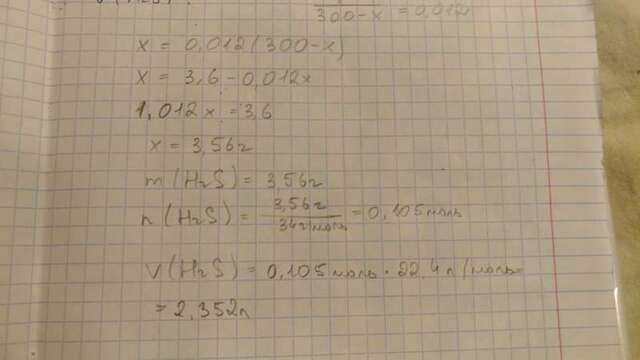 300-x = 0,012
x = 0,012(300-x)
x = 3,6-0,012x
1,012x = 3,6
x = 3,56г
m(H2S) = 3,56г
n(H2S) = 3,56г / 34г/моль = 0,105моль
V(H2S) = 0,105моль · 22,4л/моль=
= 2,352л